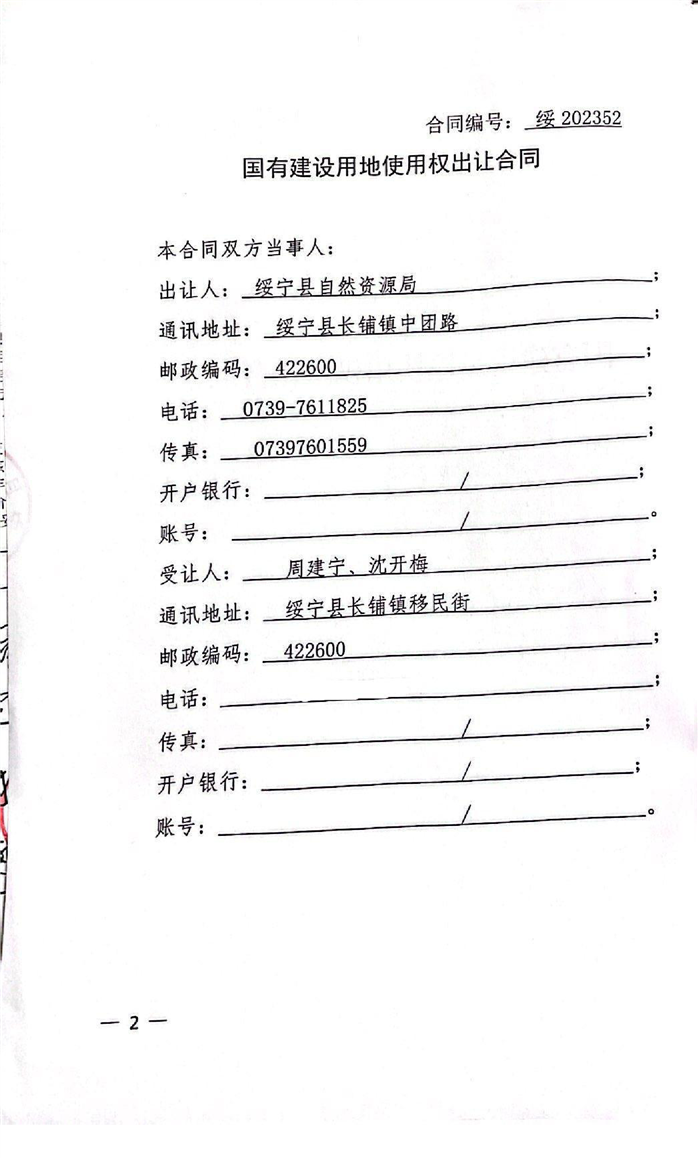 合同编号：绥 202352
国有建设用地使用权出让合同
本合同双方当事人：
出让人：绥宁县自然资源局；
通讯地址：绥宁县长铺镇中团路；
邮政编码：422600；
电话：0739-7611825；
传真：07397601559；
开户银行：/；
账号：/。
受让人：周建宁、沈开梅；
通讯地址：绥宁县长铺镇移民街；
邮政编码：422600；
电话：；
传真：/；
开户银行：/；
账号：/。
— 2 —